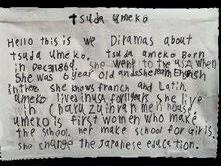 tsuda umeko
Hello this is we Diramas about
tsuda umeko. tsuda umeko Born
in Dec 1864. she went to the USA when
She was 6 year old and she learn English
in there she knows Franch and Latin
umeko lives in USA for 11 years she live
in Charles and his men house
umeko is first women who make
the school. her make school for Girls.
she change the Japanese education.